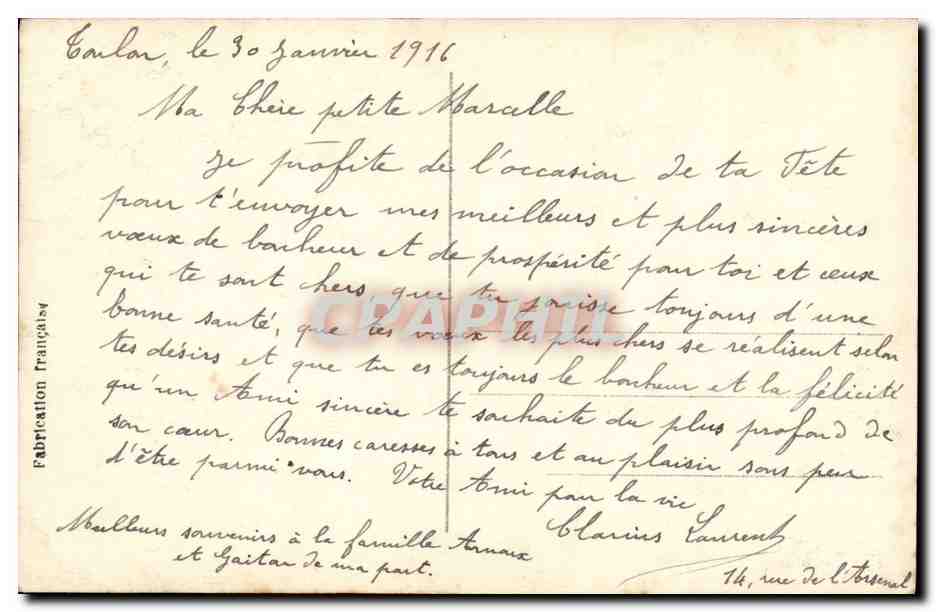 Toulon, le 30 Janvier 1916
Ma Chère petite Marcelle
Je profite de l'occasion de ta Fête
pour t'envoyer mes meilleurs et plus sincères
vœux de bonheur et de prospérité pour toi et ceux
qui te sont chers, que tu jouisse toujours d'une
bonne santé, que tes vœux les plus chers se réalisent selon
tes désirs et que tu es toujours le bonheur et la félicité
qu'un Ami sincère te souhaite du plus profond de
son cœur. Bonnes caresses à tous et au plaisir sous peu
d'être parmi vous. Votre Ami pour la vie
Clarius Laurent
14, rue de l'Arsenal
Meilleurs souvenirs à la famille Arnaux
et Gaitan de ma part.
Fabrication française
CPAPHIL